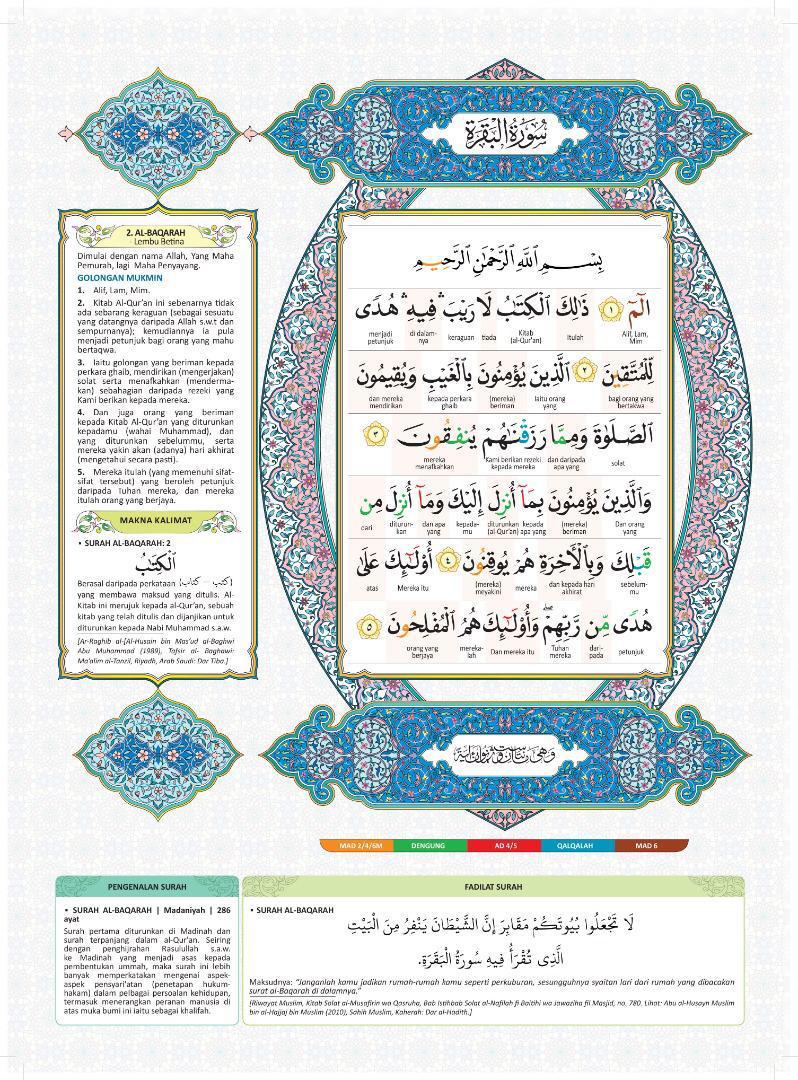 سُورَةُ الْبَقَرَةِ
2. AL-BAQARAH
- Lembu Betina
Dimulai dengan nama Allah, Yang Maha
Pemurah, lagi Maha Penyayang.
GOLONGAN MUKMIN
1. Alif, Lam, Mim.
2. Kitab Al-Qur'an ini sebenarnya tidak
ada sebarang keraguan (sebagai sesuatu
yang datangnya daripada Allah s.w.t dan
sempurnanya); kemudiannya ia pula
menjadi petunjuk bagi orang yang mahu
bertaqwa.
3. Iaitu golongan yang beriman kepada
perkara ghaib, mendirikan (mengerjakan)
solat serta menafkahkan (menderma-
kan) sebahagian daripada rezeki yang
Kami berikan kepada mereka.
4. Dan juga orang yang beriman
kepada Kitab Al-Qur'an yang diturunkan
kepadamu (wahai Muhammad), dan
yang diturunkan sebelummu, serta
mereka yakin akan (adanya) hari akhirat
(mengetahui secara pasti).
5. Mereka itulah (yang memenuhi sifat-
sifat tersebut) yang beroleh petunjuk
daripada Tuhan mereka, dan mereka
itulah orang yang berjaya.
MAKNA KALIMAT
• SURAH AL-BAQARAH: 2
اَلْكِتَابُ
Berasal daripada perkataan (كتب – كتاب)
yang membawa maksud yang ditulis. Al-
Kitab ini merujuk kepada al-Qur'an, sebuah
kitab yang telah ditulis dan dijanjikan untuk
diturunkan kepada Nabi Muhammad s.a.w.
[Ar-Raghib al-[Al-Husain bin Mas'ud al-Baghwi
Abu Muhammad (1989), Tafsir al- Baghawi:
Ma'alim al-Tanzil, Riyadh, Arab Saudi: Dar Tiba.]
بِسْمِ اللَّهِ الرَّحْمَٰنِ الرَّحِيمِ
الٓمٓ ١ ذَٰلِكَ الْكِتَٰبُ لَا رَيْبَ ۛ فِيهِ ۛ هُدًى
Alif, Lam, Mim Itulah Kitab (al-Qur'an) tiada keraguan di dalam-nya menjadi petunjuk
لِّلْمُتَّقِينَ ٢ الَّذِينَ يُؤْمِنُونَ بِالْغَيْبِ وَيُقِيمُونَ
bagi orang yang bertakwa Iaitu orang yang (mereka) beriman kepada perkara ghaib dan mereka mendirikan
الصَّلَوٰةَ وَمِمَّا رَزَقْنَٰهُمْ يُنفِقُونَ ٣
solat dan daripada apa yang Kami berikan rezeki kepada mereka mereka menafkahkan
وَالَّذِينَ يُؤْمِنُونَ بِمَآ أُنزِلَ إِلَيْكَ وَمَآ أُنزِلَ مِن
Dan orang yang (mereka) beriman kepada apa yang diturunkan (al-Qur'an) kepada-mu dan apa yang diturun-kan dari
قَبْلِكَ وَبِالْءَاخِرَةِ هُمْ يُوقِنُونَ ٤ أُولَٰٓئِكَ عَلَىٰ
sebelum-mu dan kepada hari akhirat mereka (mereka) meyakini Mereka itu atas
هُدًى مِّن رَّبِّهِمْ ۖ وَأُولَٰٓئِكَ هُمُ الْمُفْلِحُونَ ٥
petunjuk dari-pada Tuhan mereka Dan mereka itu mereka-lah orang yang berjaya
MAD 2/4/6M DENGUNG AD 4/5 QALQALAH MAD 6
PENGENALAN SURAH
• SURAH AL-BAQARAH | Madaniyah | 286
ayat
Surah pertama diturunkan di Madinah dan
surah terpanjang dalam al-Qur'an. Seiring
dengan penghijrahan Rasulullah s.a.w.
ke Madinah yang menjadi asas kepada
pembentukan ummah, maka surah ini lebih
banyak memperkatakan mengenai aspek-
aspek pensyari'atan (penetapan hukum-
hakam) dalam pelbagai persoalan kehidupan,
termasuk menerangkan peranan manusia di
atas muka bumi ini iaitu sebagai khalifah.
FADILAT SURAH
• SURAH AL-BAQARAH
لَا تَجْعَلُوا بُيُوتَكُمْ مَقَابِرَ إِنَّ الشَّيْطَانَ يَنْفِرُ مِنَ الْبَيْتِ
الَّذِى تُقْرَأُ فِيهِ سُورَةُ الْبَقَرَةِ.
Maksudnya: "Janganlah kamu jadikan rumah-rumah kamu seperti perkuburan, sesungguhnya syaitan lari dari rumah yang dibacakan
surat al-Baqarah di dalamnya."
[Riwayat Muslim, Kitab Salat al-Musafirin wa Qasruha, Bab Istihbab Solat al-Nafilah fi Baitihi wa Jawaziha fil Masjid, no. 780. Lihat: Abu al-Husayn Muslim
bin al-Hajjaj bin Muslim (2010), Sahih Muslim, Kaherah: Dar al-Hadith.]